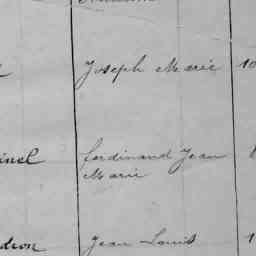 Joseph Marie 10
inel Ferdinand Jean
Marie
dron Jean Louis 1